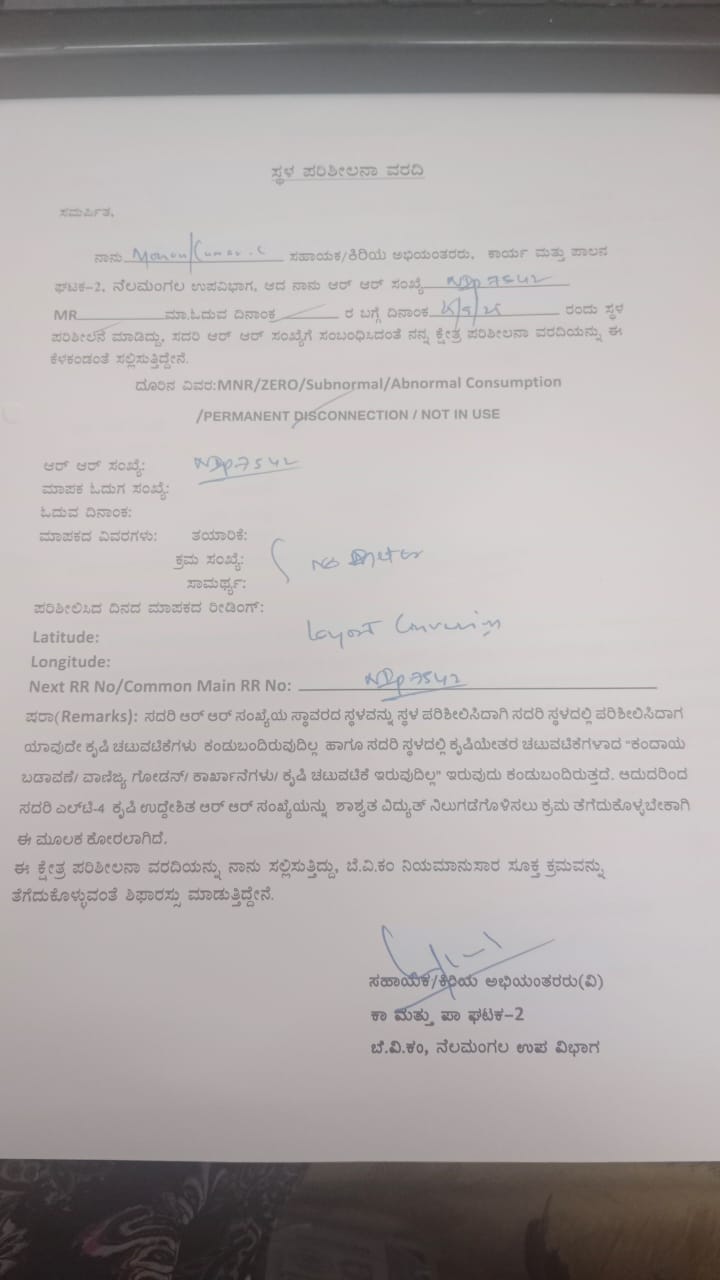 ಸ್ಥಳ ಪರಿಶೀಲನಾ ವರದಿ
ಸಮರ್ಪಿತ,
ನಾನು Mohan Kumar. C ಸಹಾಯಕ/ಕಿರಿಯ ಅಭಿಯಂತರರು, ಕಾರ್ಯ ಮತ್ತು ಪಾಲನ
ಘಟಕ-2, ನೆಲಮಂಗಲ ಉಪವಿಭಾಗ, ಆದ ನಾನು ಆರ್ ಆರ್ ಸಂಖ್ಯೆ NDP 7542
MR ಮಾ.ಓದುವ ದಿನಾಂಕ ರ ಬಗ್ಗೆ ದಿನಾಂಕ /5/25 ರಂದು ಸ್ಥಳ
ಪರಿಶೀಲನೆ ಮಾಡಿದ್ದು, ಸದರಿ ಆರ್ ಆರ್ ಸಂಖ್ಯೆಗೆ ಸಂಬಂಧಿಸಿದಂತೆ ನನ್ನ ಕ್ಷೇತ್ರ ಪರಿಶೀಲನಾ ವರದಿಯನ್ನು ಈ
ಕೆಳಕಂಡಂತೆ ಸಲ್ಲಿಸುತ್ತಿದ್ದೇನೆ.
ದೂರಿನ ವಿವರ:MNR/ZERO/Subnormal/Abnormal Consumption
/PERMANENT DISCONNECTION / NOT IN USE
ಆರ್ ಆರ್ ಸಂಖ್ಯೆ: NDP 7542
ಮಾಪಕ ಓದುಗ ಸಂಖ್ಯೆ:
ಓದುವ ದಿನಾಂಕ:
ಮಾಪಕದ ವಿವರಗಳು: ತಯಾರಿಕೆ:
ಕ್ರಮ ಸಂಖ್ಯೆ: No Meter
ಸಾಮರ್ಥ್ಯ:
ಪರಿಶೀಲಿಸಿದ ದಿನದ ಮಾಪಕದ ರೀಡಿಂಗ್:
Latitude: Layout
Longitude:
Next RR No/Common Main RR No: NDP 7542
ಷರಾ(Remarks): ಸದರಿ ಆರ್ ಆರ್ ಸಂಖ್ಯೆಯ ಸ್ಥಾವರದ ಸ್ಥಳವನ್ನು ಸ್ಥಳ ಪರಿಶೀಲಿಸಿದಾಗಿ ಸದರಿ ಸ್ಥಳದಲ್ಲಿ ಪರಿಶೀಲಿಸಿದಾಗ
ಯಾವುದೇ ಕೃಷಿ ಚಟುವಟಿಕೆಗಳು ಕಂಡುಬಂದಿರುವುದಿಲ್ಲ ಹಾಗೂ ಸದರಿ ಸ್ಥಳದಲ್ಲಿ ಕೃಷಿಯೇತರ ಚಟುವಟಿಕೆಗಳಾದ "ಕಂದಾಯ
ಬಡಾವಣೆ/ ವಾಣಿಜ್ಯ ಗೋಡನ್/ ಕಾರ್ಖಾನೆಗಳು/ ಕೃಷಿ ಚಟುವಟಿಕೆ ಇರುವುದಿಲ್ಲ" ಇರುವುದು ಕಂಡುಬಂದಿರುತ್ತದೆ. ಆದುದರಿಂದ
ಸದರಿ ಎಲ್‌ಟಿ-4 ಕೃಷಿ ಉದ್ದೇಶಿತ ಆರ್ ಆರ್ ಸಂಖ್ಯೆಯನ್ನು ಶಾಶ್ವತ ವಿದ್ಯುತ್ ನಿಲುಗಡೆಗೊಳಿಸಲು ಕ್ರಮ ತೆಗೆದುಕೊಳ್ಳಬೇಕಾಗಿ
ಈ ಮೂಲಕ ಕೋರಲಾಗಿದೆ.
ಈ ಕ್ಷೇತ್ರ ಪರಿಶೀಲನಾ ವರದಿಯನ್ನು ನಾನು ಸಲ್ಲಿಸುತ್ತಿದ್ದು, ಬೆ.ವಿ.ಕಂ ನಿಯಮಾನುಸಾರ ಸೂಕ್ತ ಕ್ರಮವನ್ನು
ತೆಗೆದುಕೊಳ್ಳುವಂತೆ ಶಿಫಾರಸ್ಸು ಮಾಡುತ್ತಿದ್ದೇನೆ.
ಸಹಾಯಕ/ಕಿರಿಯ ಅಭಿಯಂತರರು(ವಿ)
ಕಾ ಮತ್ತು ಪಾ ಘಟಕ-2
ಬೆ.ವಿ.ಕಂ, ನೆಲಮಂಗಲ ಉಪ ವಿಭಾಗ